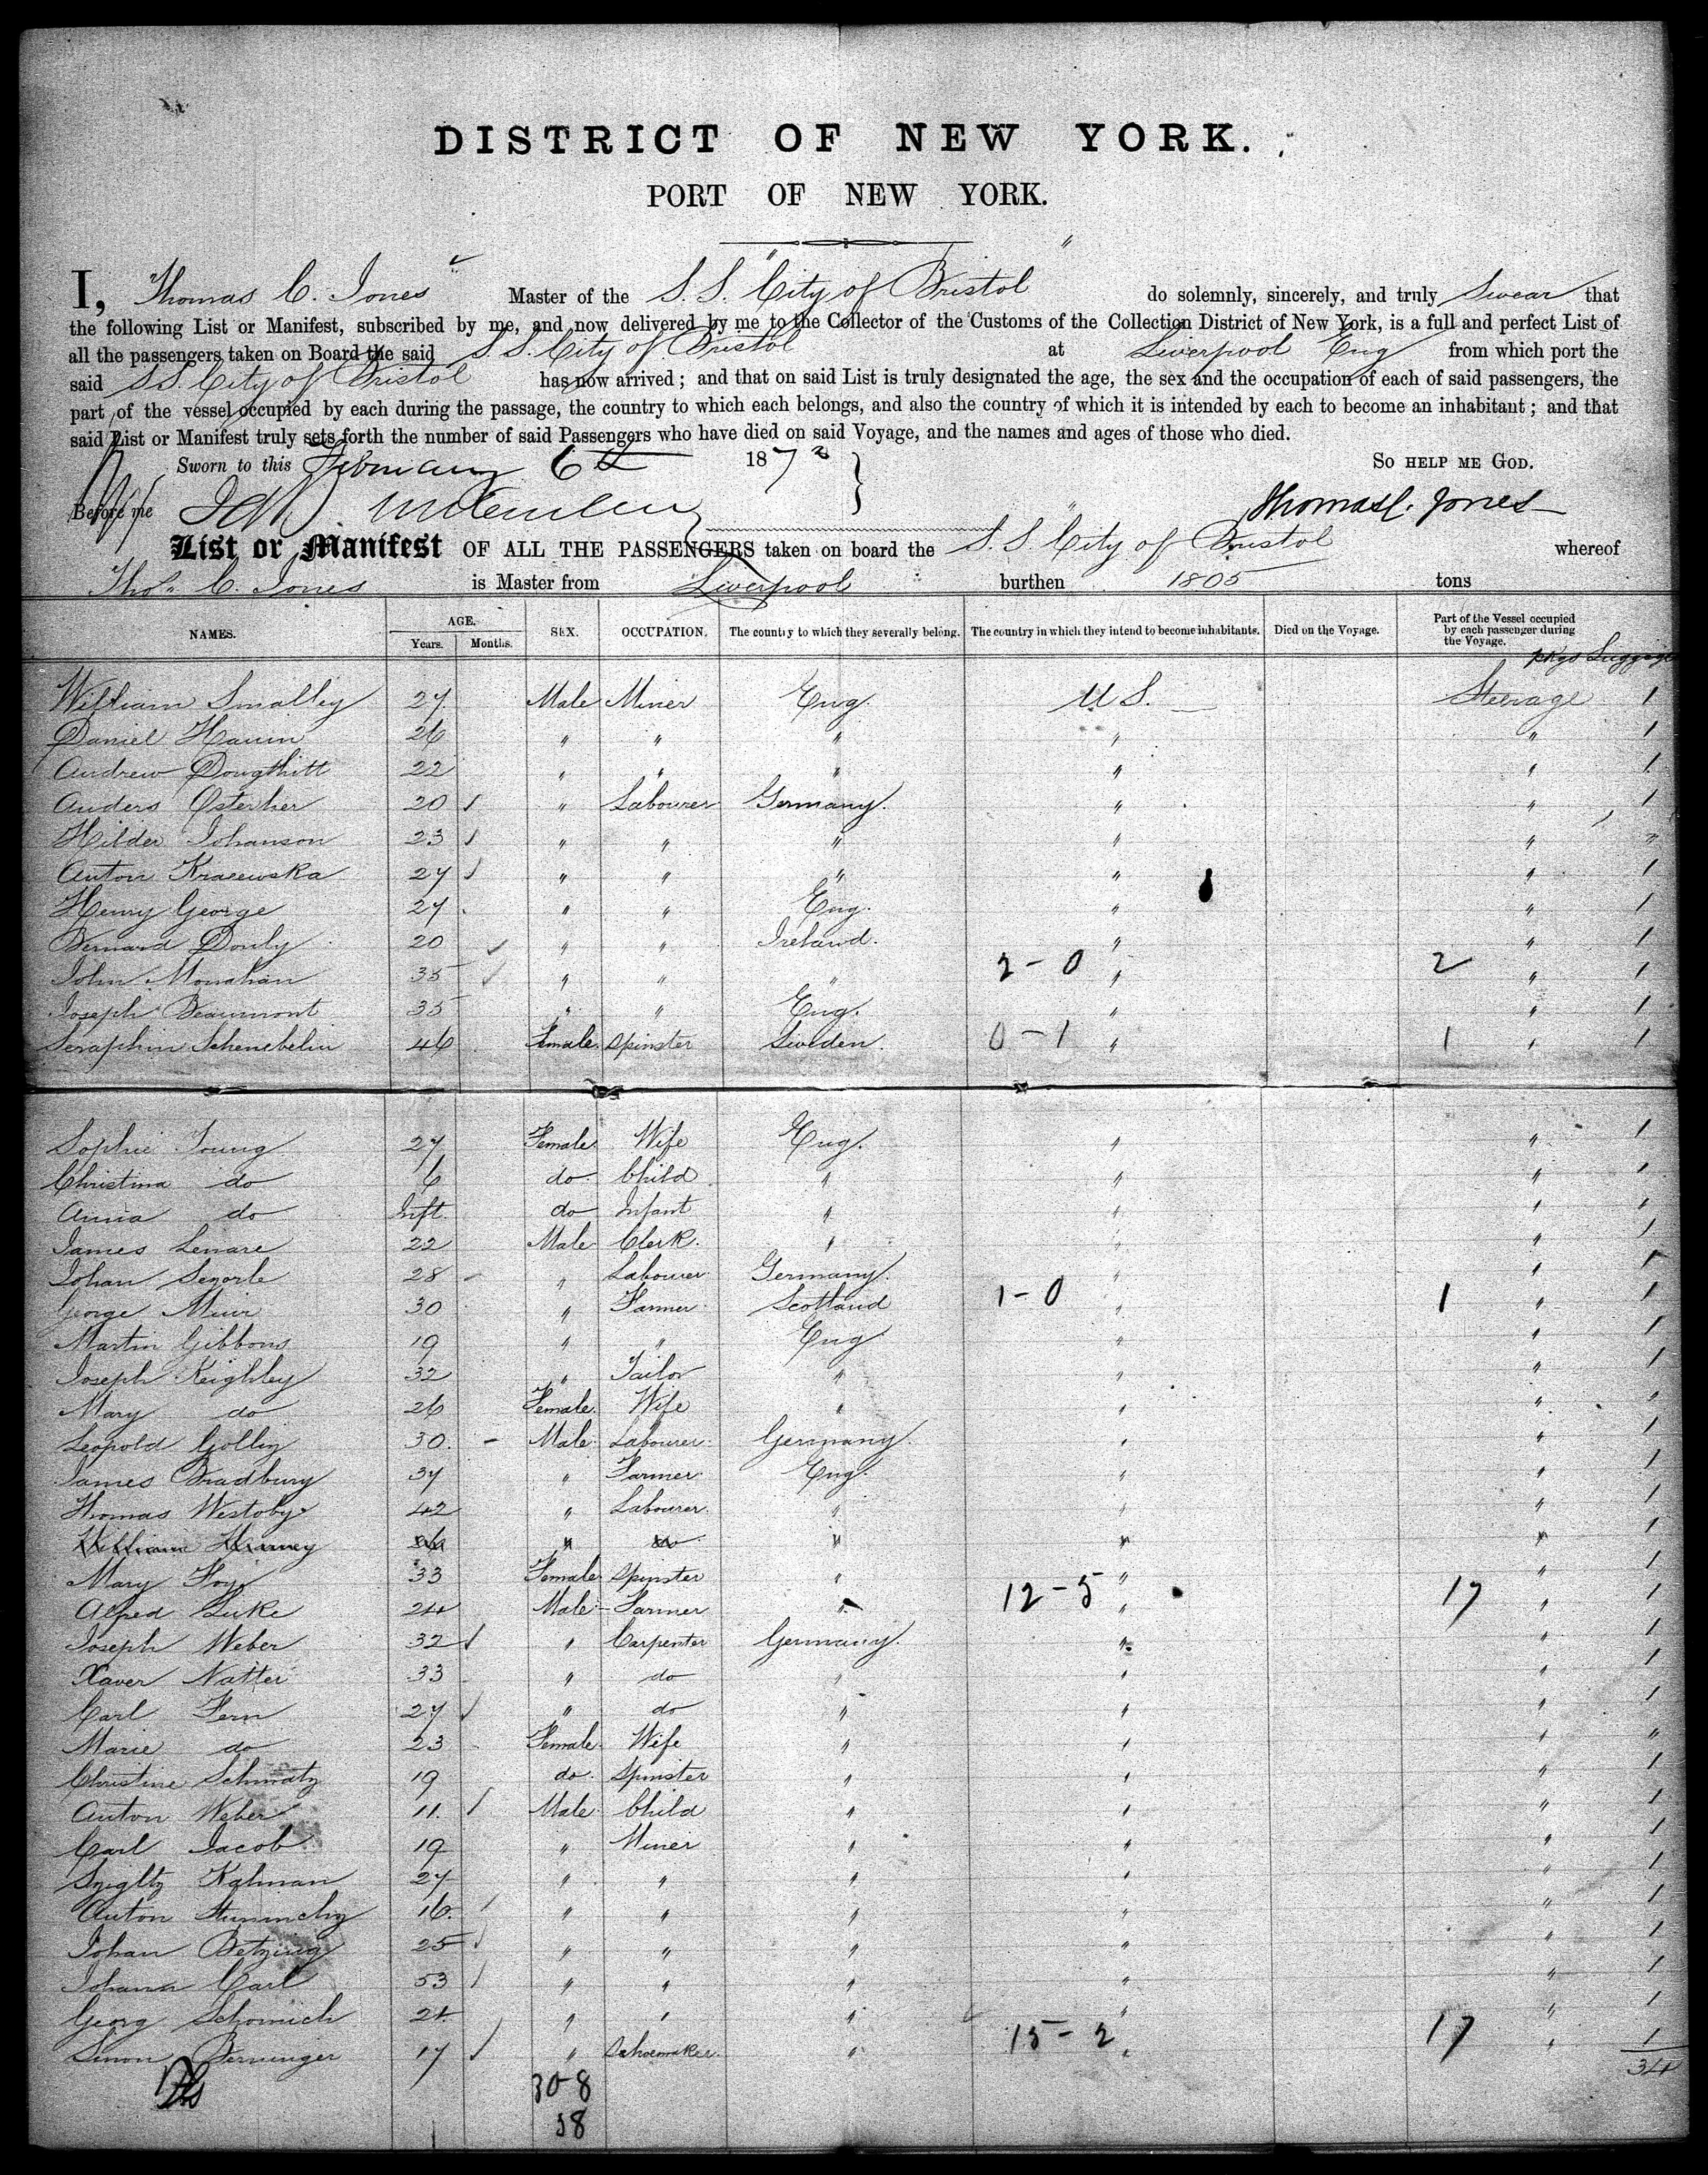 DISTRICT OF NEW YORK.
PORT OF NEW YORK.
I, Thomas C. Jones Master of the S.S. "City of Bristol" do solemnly, sincerely, and truly Swear that
the following List or Manifest, subscribed by me, and now delivered by me to the Collector of the Customs of the Collection District of New York, is a full and perfect List of
all the passengers taken on Board the said S.S. City of Bristol at Liverpool Eng from which port the
said S.S. City of Bristol has now arrived; and that on said List is truly designated the age, the sex and the occupation of each of said passengers, the
part of the vessel occupied by each during the passage, the country to which each belongs, and also the country of which it is intended by each to become an inhabitant; and that
said List or Manifest truly sets forth the number of said Passengers who have died on said Voyage, and the names and ages of those who died.
Sworn to this February 6th 1872 SO HELP ME GOD.
Before me Thomas C. Jones
List or Manifest OF ALL THE PASSENGERS taken on board the S.S. "City of Bristol" whereof
Thos C. Jones is Master from Liverpool burthen 1805 tons
NAMES. AGE. Years. Months. SEX. OCCUPATION. The country to which they severally belong. The country in which they intend to become inhabitants. Died on the Voyage. Part of the Vessel occupied by each passenger during the Voyage. pkgs Luggage
William Smalley 27 Male Miner Eng. U S. Steerage 1
Daniel 26 " " " " " 1
Andrew Dougthitt 22 " " " " " 1
Anders Osterher 20 " Labourer Germany. " " 1
Hilder Johanson 23 " " " " " "
Anton Kracewska 27 " " " " " 1
Henry George 27 " " Eng. " " 1
Bernard Donly 20 " " Ireland. " " 1
John Monahan 35 " " " 2-0 " 2 " 1
Joseph Beaumont 35 " " Eng. " " 1
Seraphin Schenebelin 46 Female Spinster Sweden. 0-1 " 1 " 1
Sophie Young 27 Female Wife Eng. " " 1
Christina do 6 do Child " " " 1
Anna do Inft. do Infant " " " "
James Lenare 22 Male Clerk. " " " 1
Johan 28 " Labourer Germany. " " 1
George Muir 30 " Farmer Scotland 1-0 " 1 " 1
Martin Gibbons 19 " " Eng " " 1
Joseph Keighley 32 " Tailor " " " 1
Mary do 26 Female. Wife " " " "
Leopold Gollin 30. Male Labourer. Germany. " " 1
James Bradbury 37 " Farmer Eng. " " 1
Thomas Westoby 42 " Labourer. " " " 1
William " " " " 1
Mary Foy 33 Female Spinster " " " 1
Alfred Luke 24 Male Farmer " 12-5 " 17 " 1
Joseph Weber 32 " Carpenter Germany. " " 1
Xaver Natter 33 " do " " " 1
Carl Fern 27 " do " " " 1
Marie do 23 Female Wife " " " "
Christine Schmatz 19 do. Spinster " " " 1
Anton Weber 11. Male Child " " " 1
Carl Jacob 19 " Miner " " " 1
Kalman 27 " " " " " 1
Anton 16. " " " " " 1
Johan Betzing 25 " " " " " 1
Johann Carl 53 " " " " " 1
Georg Schomich 24 " " " " " 1
Simon Berninger 17 " Shoemaker. " 15-2 " 17 " 1
34
30-8
38